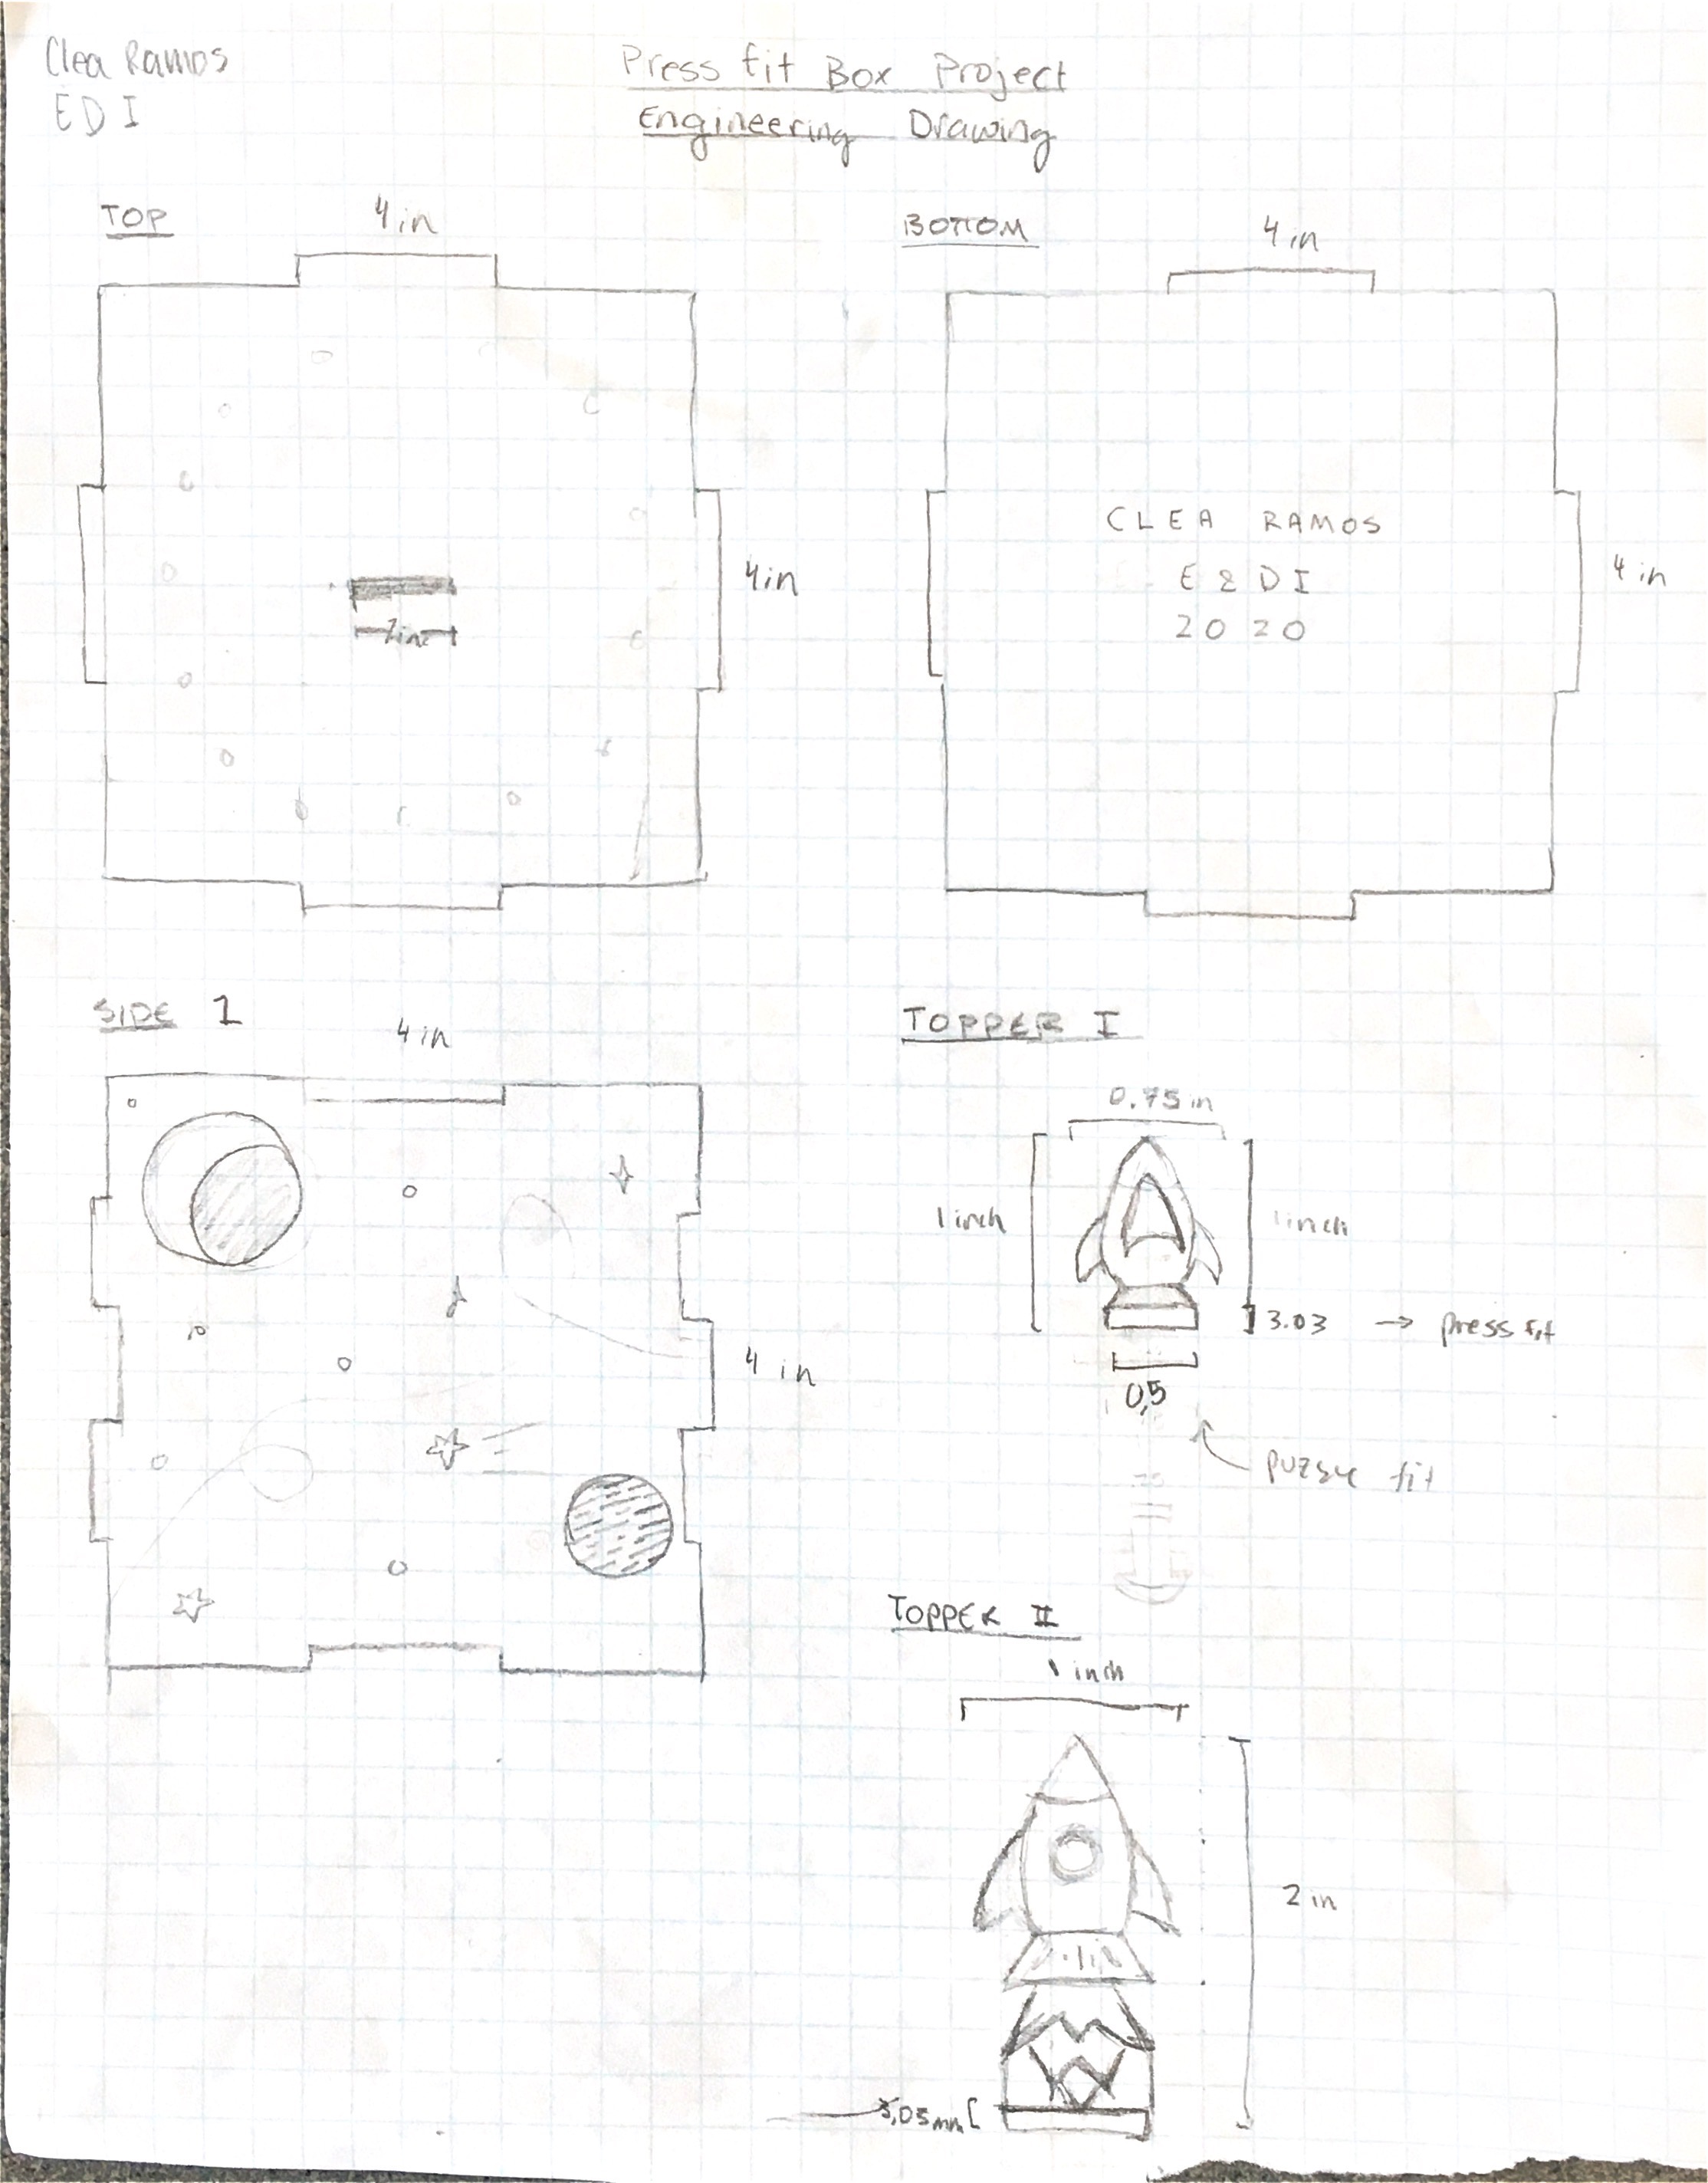 Clea Ramos
ED I
Press fit Box Project
Engineering Drawing
TOP
4 in
4 in
BOTTOM
4 in
CLEA RAMOS
E & D I
2020
4 in
SIDE 1
4 in
4 in
TOPPER I
0.75 in
1 inch
1 inch
3.03 → press fit
0,5
fit
TOPPER II
1 inch
2 in
3,05 mm